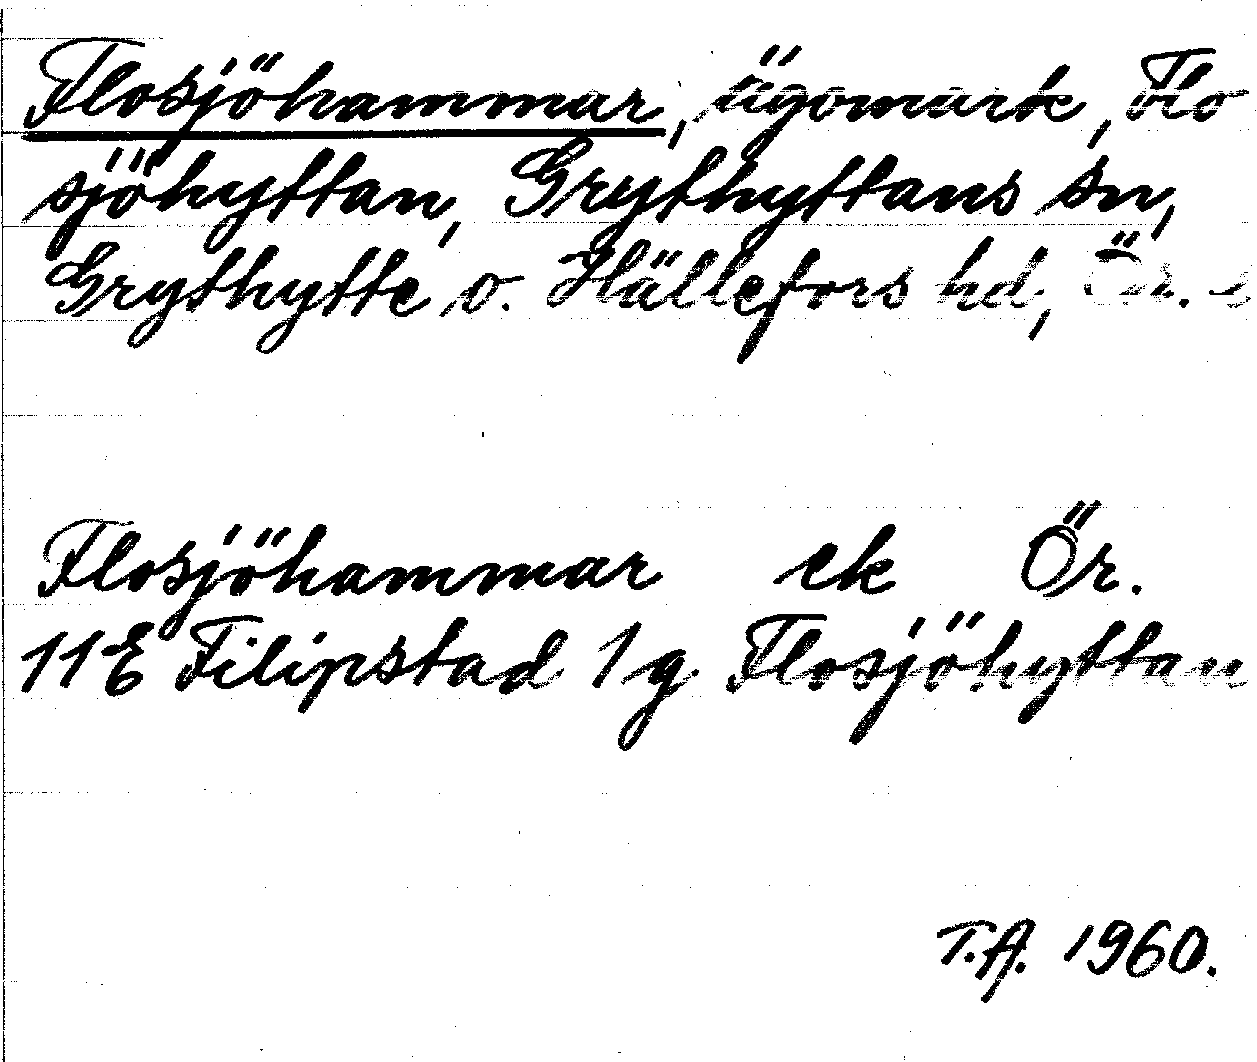 Flosjöhammar, ägomark, Flo
sjöhyttan, Grythyttans sn,
Grythytte o. Hällefors hd, Ör.
Flosjöhammar ek Ör.
11E Filipstad 1g Flosjöhyttan
T.A. 1960.